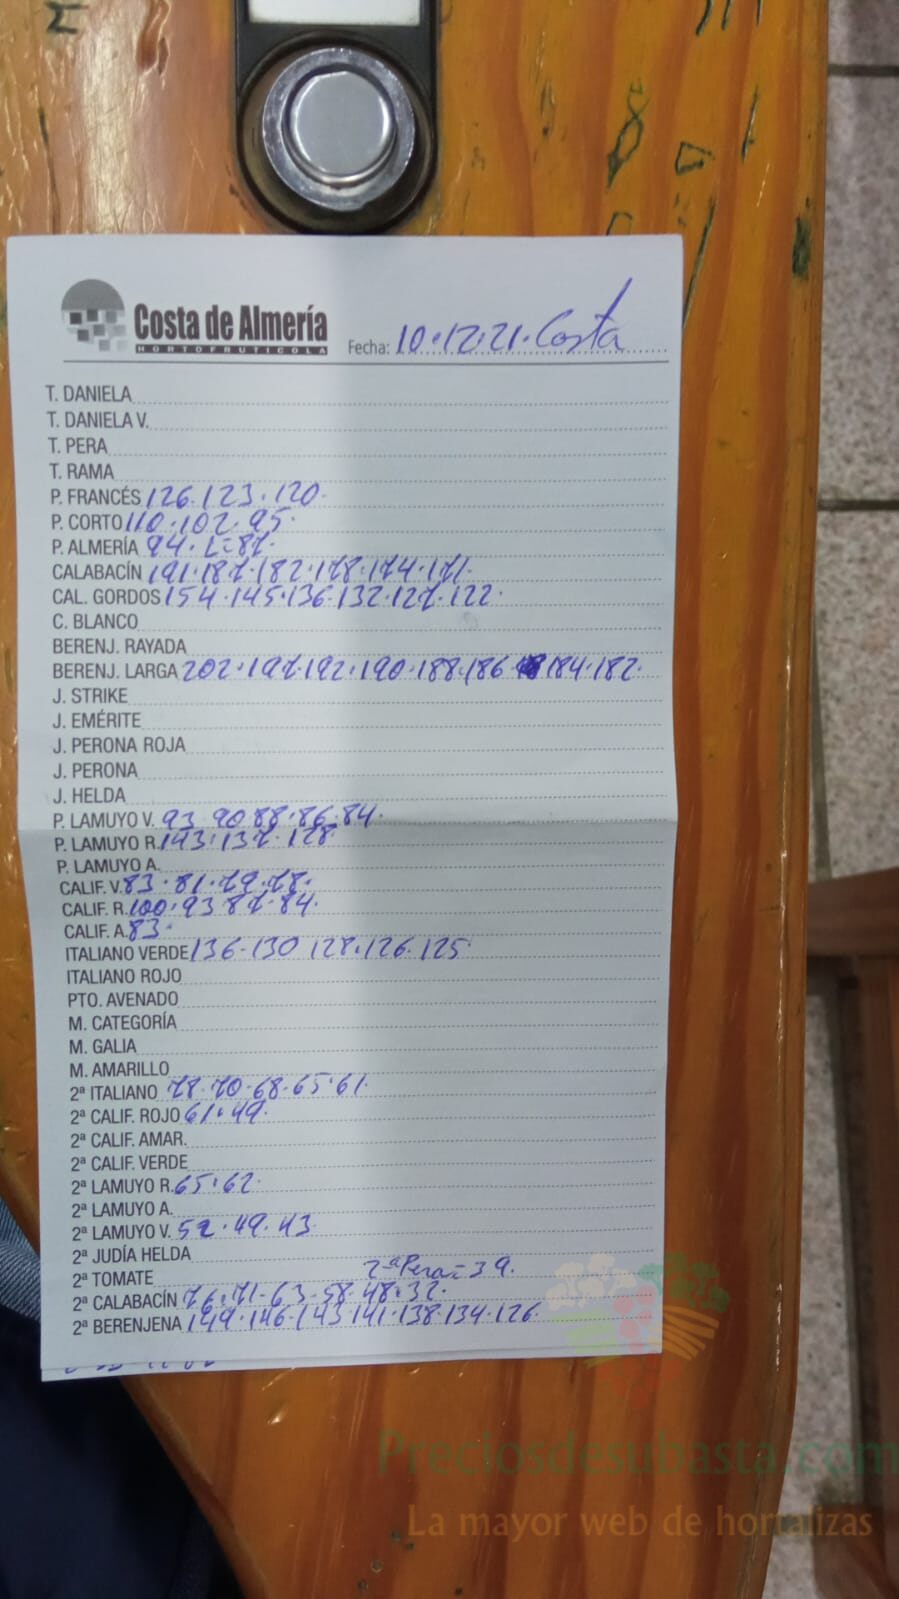 Costa de Almería
HORTOFRUTICOLA
Fecha: 10.12.21. Costa
T. DANIELA
T. DANIELA V.
T. PERA
T. RAMA
P. FRANCÉS 126.123.120.
P. CORTO 110.102.95.
P. ALMERÍA 94. L=87.
CALABACÍN 191.187.182.178.174.171.
CAL. GORDOS 154.145.136.132.127.122.
C. BLANCO
BERENJ. RAYADA
BERENJ. LARGA 202.197.192.190.188.186 184.182.
J. STRIKE
J. EMÉRITE
J. PERONA ROJA
J. PERONA
J. HELDA
P. LAMUYO V. 93.90.88.86.84.
P. LAMUYO R. 143.137.128
P. LAMUYO A.
CALIF. V. 83.81.79.78.
CALIF. R. 100.93 87.84.
CALIF. A. 83.
ITALIANO VERDE 136.130 128.126.125
ITALIANO ROJO
PTO. AVENADO
M. CATEGORÍA
M. GALIA
M. AMARILLO
2ª ITALIANO 78.70.68.65.61.
2ª CALIF. ROJO 61.49.
2ª CALIF. AMAR.
2ª CALIF. VERDE
2ª LAMUYO R. 65.62.
2ª LAMUYO A.
2ª LAMUYO V. 52.49.43
2ª JUDÍA HELDA
2ª TOMATE 2ª Pera=39.
2ª CALABACÍN 76.71.63.58.48.32.
2ª BERENJENA 149.146.143.141.138.134.126.
Preciosdesubasta.com
La mayor web de hortalizas